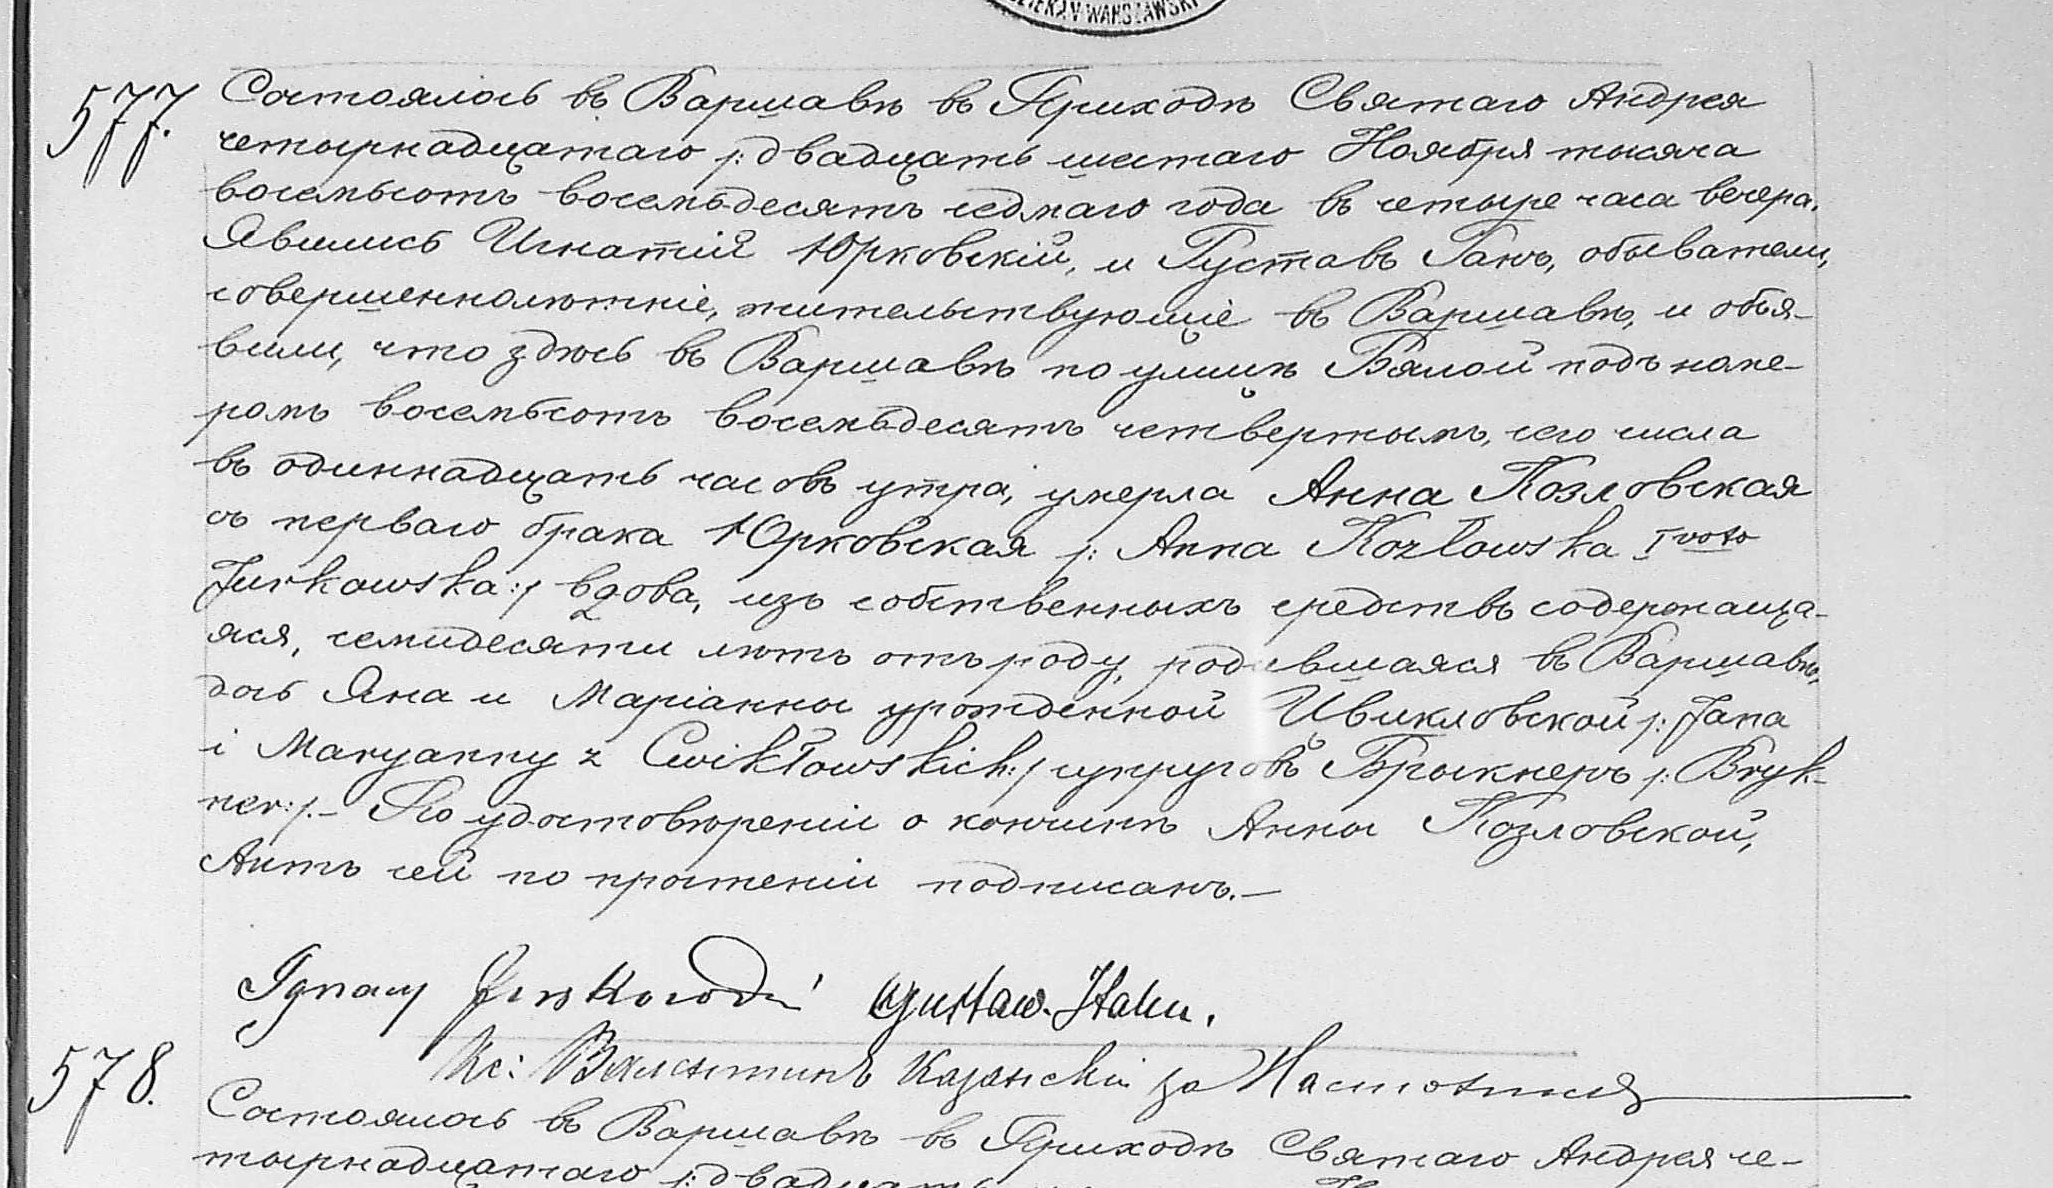 DZIEKAN WARSZAWSKI
577. Состоялось въ Варшавѣ въ Приходѣ Святаго Андрея
четырнадцатаго /:двадцать шестаго Ноября тысяча
восемьсотъ восемьдесятъ седмаго года въ четыре часа вечера.
Явились Игнатій Юрковскій, и Густавъ Ганъ, обыватели,
совершеннолѣтніе, жительствующіе въ Варшавѣ, и объя-
вили, что здѣсь въ Варшавѣ по улицѣ Бялой подъ номе-
ромъ восемьсотъ восемьдесятъ четвертымъ, сего числа
въ одиннадцать часовъ утра, умерла Анна Козловская
съ перваго брака Юрковская /: Anna Kozłowska I voto
Jurkowska:/ вдова, изъ собственныхъ средствъ содержаща-
яся, семидесяти лѣтъ отъ роду, родившаяся въ Варшавѣ,
дочь Яна и Маріанны урожденной Цвикловской /: Jana
i Maryanny z Cwikłowskich:/ супруговъ Брыкнеръ /: Bryk-
ner:/.– По удостовѣреніи о кончинѣ Анны Козловской,
Актъ сей по прочтеніи подписанъ.–
Ignacy Jurkowski Gustaw. Hahn.
Кс: Валентинъ Казанскій за Настоятеля
578. Состоялось въ Варшавѣ въ Приходѣ Святаго Андрея че-
тырнадцатаго /:двадцать